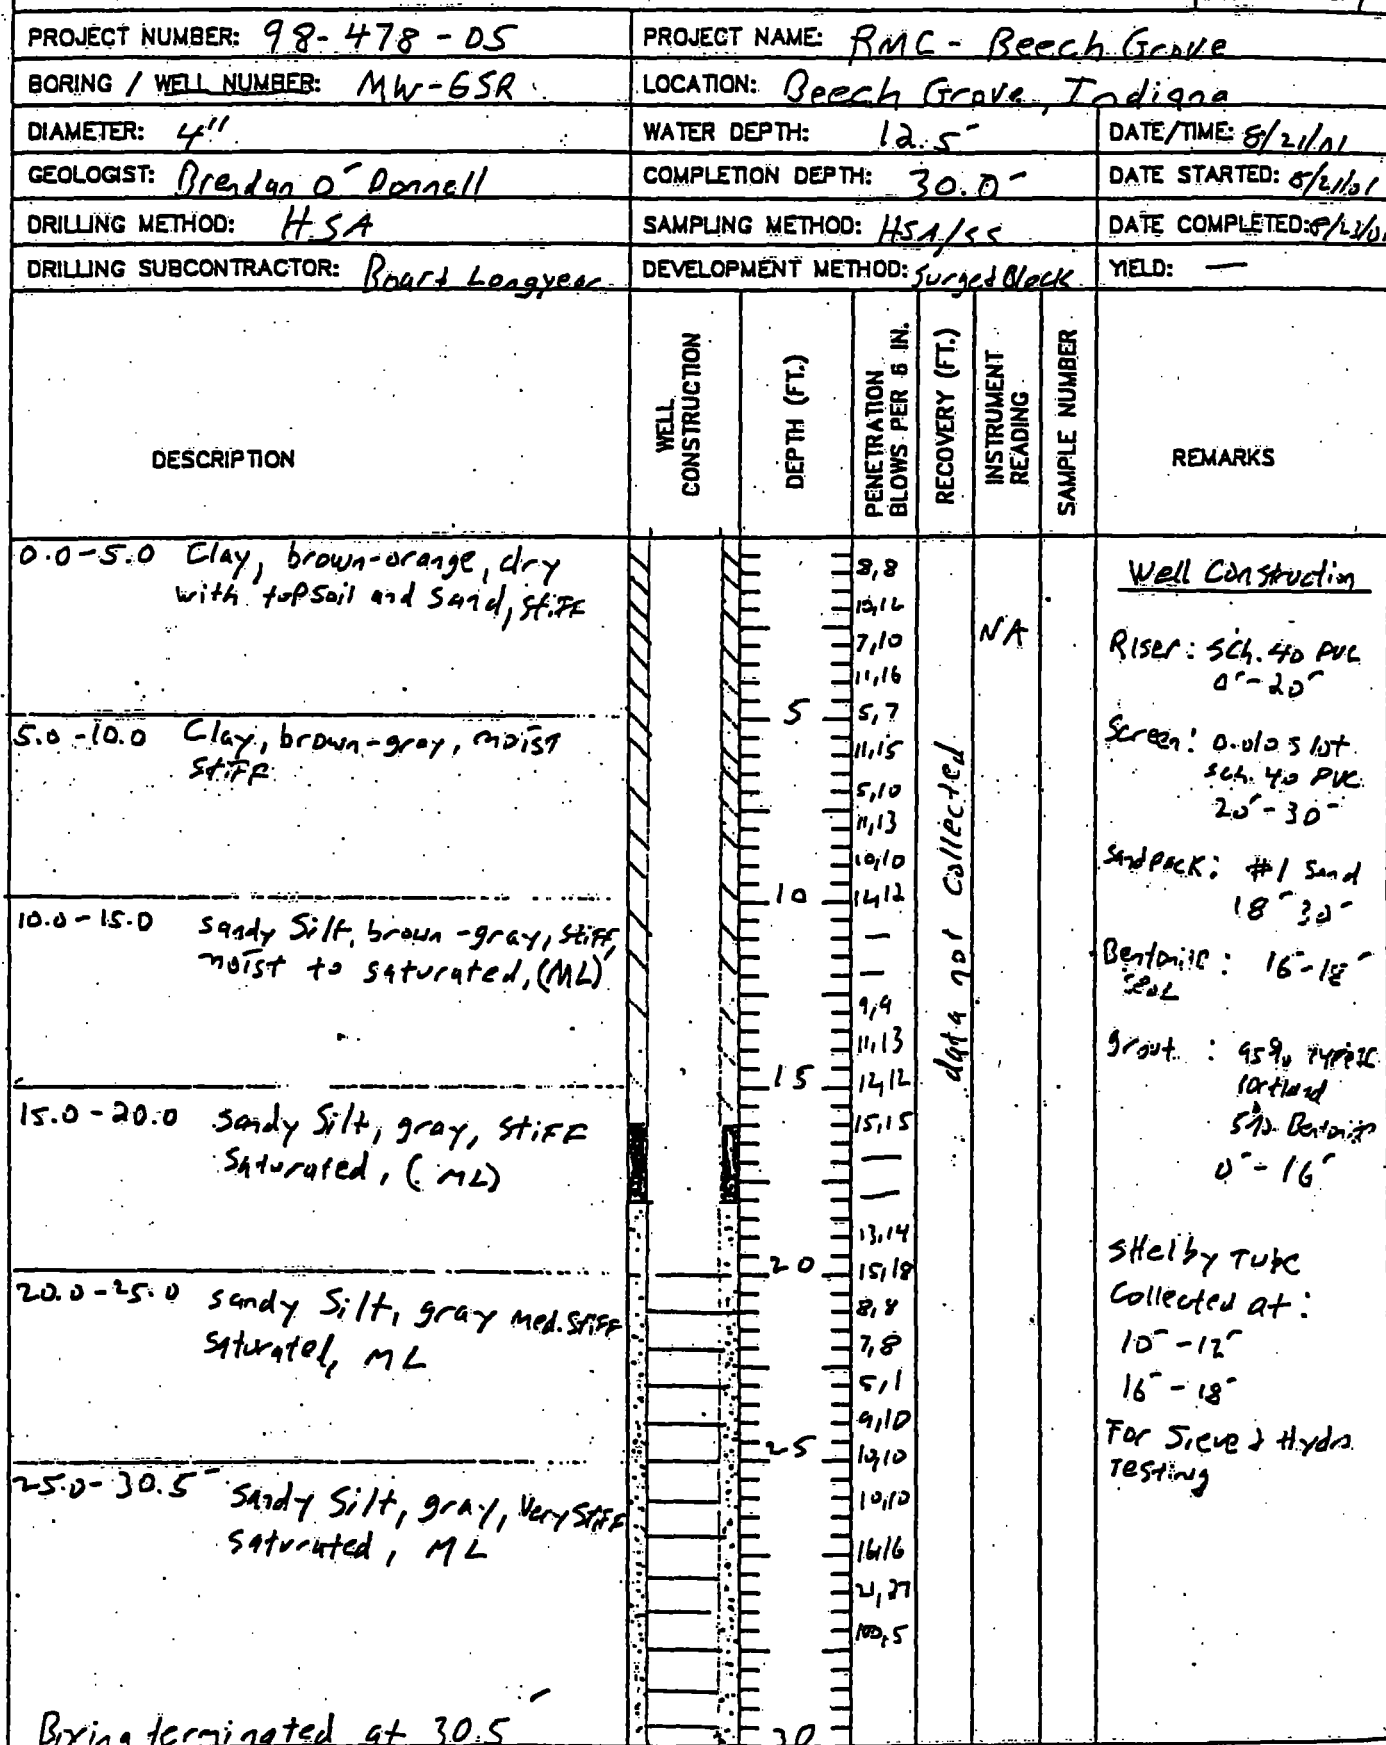 PROJECT NUMBER: 98-478-05
PROJECT NAME: RMC - Beech Grove
BORING / WELL NUMBER: MW-6SR
LOCATION: Beech Grove, Indiana
DIAMETER: 4"
WATER DEPTH: 12.5'
DATE/TIME: 8/21/01
GEOLOGIST: Brendan O'Donnell
COMPLETION DEPTH: 30.0'
DATE STARTED: 8/21/01
DRILLING METHOD: HSA
SAMPLING METHOD: HSA/SS
DATE COMPLETED: 8/23/01
DRILLING SUBCONTRACTOR: Boart Longyear
DEVELOPMENT METHOD: Surged Block
YIELD: —
DESCRIPTION
WELL CONSTRUCTION
DEPTH (FT.)
PENETRATION BLOWS PER 6 IN.
RECOVERY (FT.)
INSTRUMENT READING
SAMPLE NUMBER
REMARKS
0.0-5.0 Clay, brown-orange, dry
with topsoil and sand, stiff
5.0-10.0 Clay, brown-gray, moist
stiff
10.0-15.0 sandy Silt, brown-gray, stiff,
moist to saturated, (ML)
15.0-20.0 sandy Silt, gray, stiff
saturated, (ML)
20.0-25.0 sandy Silt, gray med. stiff
saturated, ML
25.0-30.5' sandy Silt, gray, very stiff
saturated, ML
Boring terminated at 30.5'
5
10
15
20
25
30
8,8
7,10
11,16
5,7
11,15
5,10
11,13
10,10
14,12
—
—
9,9
11,13
12,12
15,15
—
—
13,14
15,18
8,8
7,8
5,1
9,10
10,10
10,10
16,16
21,27
100,5
data not collected
NA
Well Construction
Riser: sch. 40 PVC
0'-20'
Screen: 0.010 slot
sch. 40 PVC
20'-30'
Sandpack: #1 Sand
18' 30'
Bentonite: 16'-18'
seal
grout : 95% Type II
Portland
5% Bentonite
0'-16'
Shelby Tube
Collected at:
10'-12'
16'-18'
For Sieve & Hydro
Testing